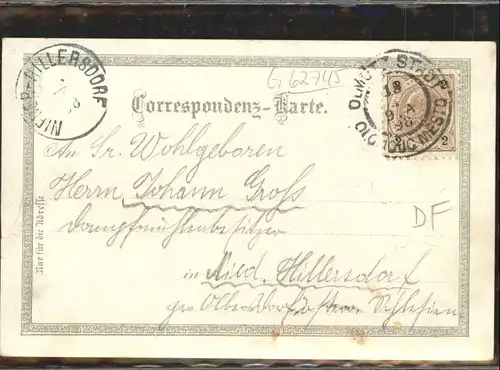 NIEDER-HILLERSDORF
G 62745
OLMÜTZ STADT
18
9
OLOMOUC MĚSTO
2
Correspondenz-Karte.
An Sr. Wohlgeboren
Herrn Johann Groß
Dampfmühlenbesitzer
DF
in Nied. Hillersdorf
Schlesien
Nur für die Adresse